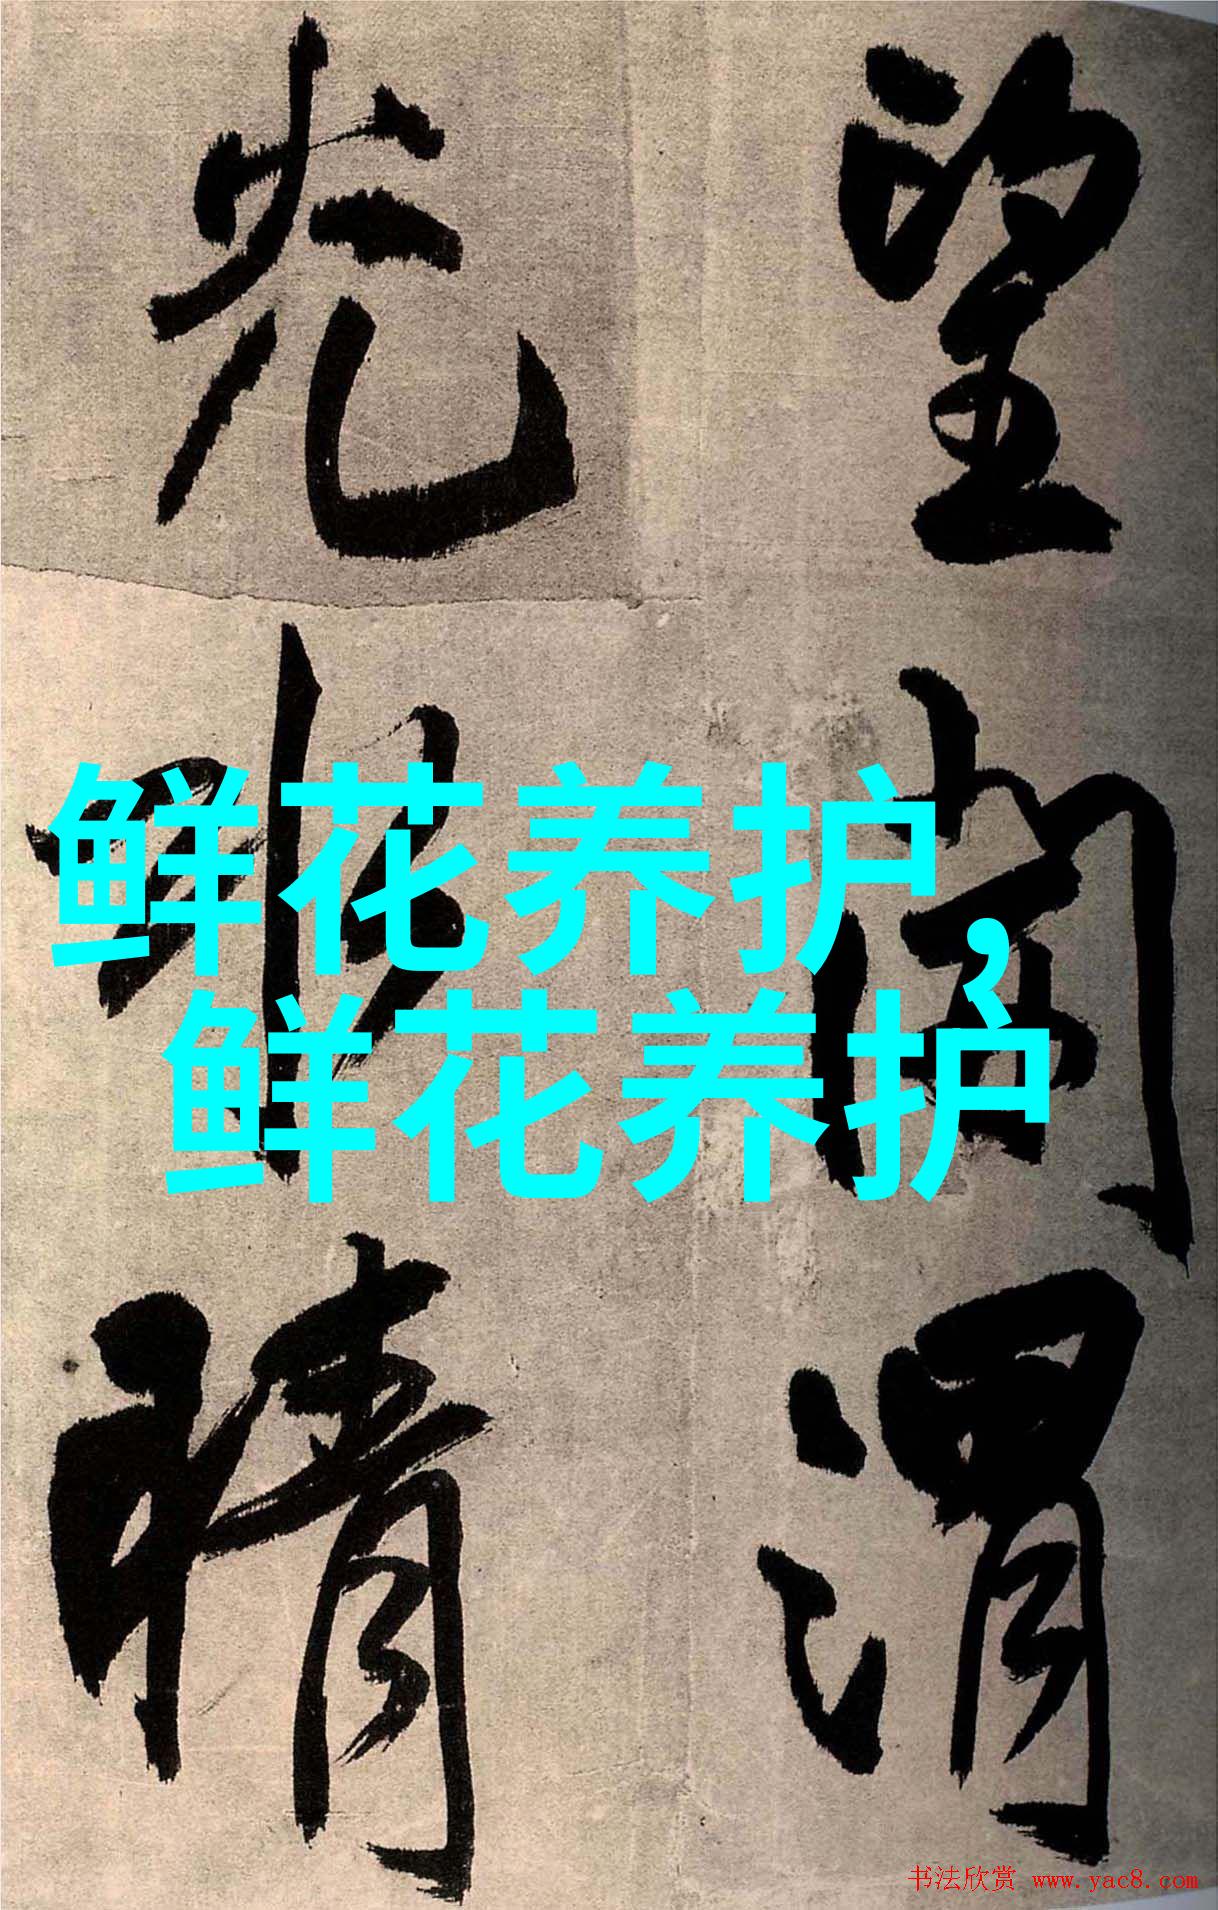 望
渭
光
晴
鲜花养护，
鲜花养护
书法欣赏 www.yac8.com